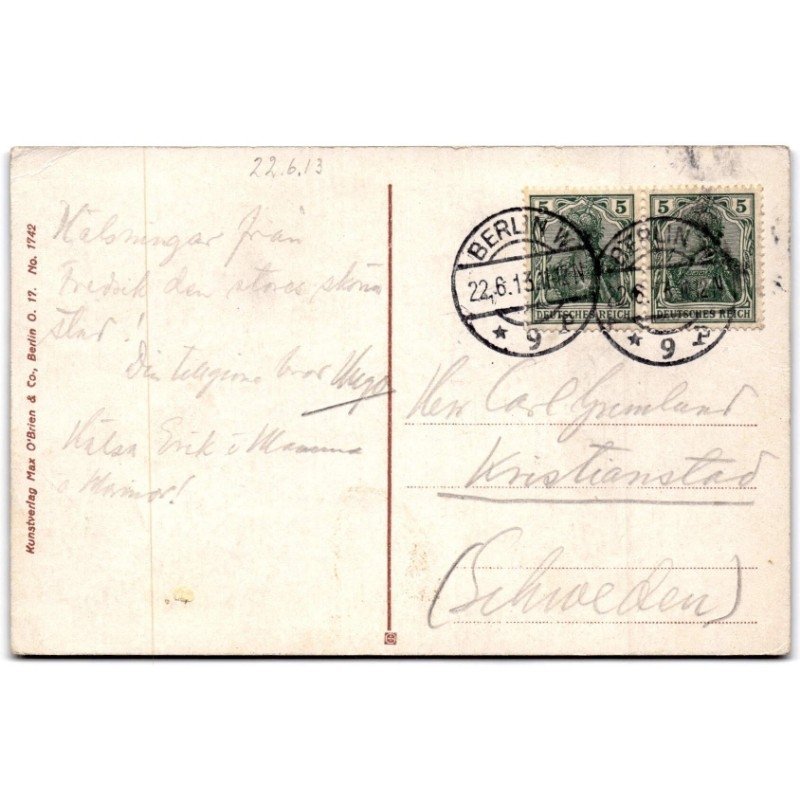 22.6.13
Hälsningar från
Fredrik den stores sköna
stad!
Din tillgivne bror Hugo
Hälsa Erik o Mamma
o
Kunstverlag Max O'Brien & Co., Berlin O. 17. No. 1742
5 5 5 5
DEUTSCHES REICH DEUTSCHES REICH
BERLIN W
22.6.13
* 9 P
BERLIN
* 9 P
Herr Carl
Kristianstad
(Schweden)